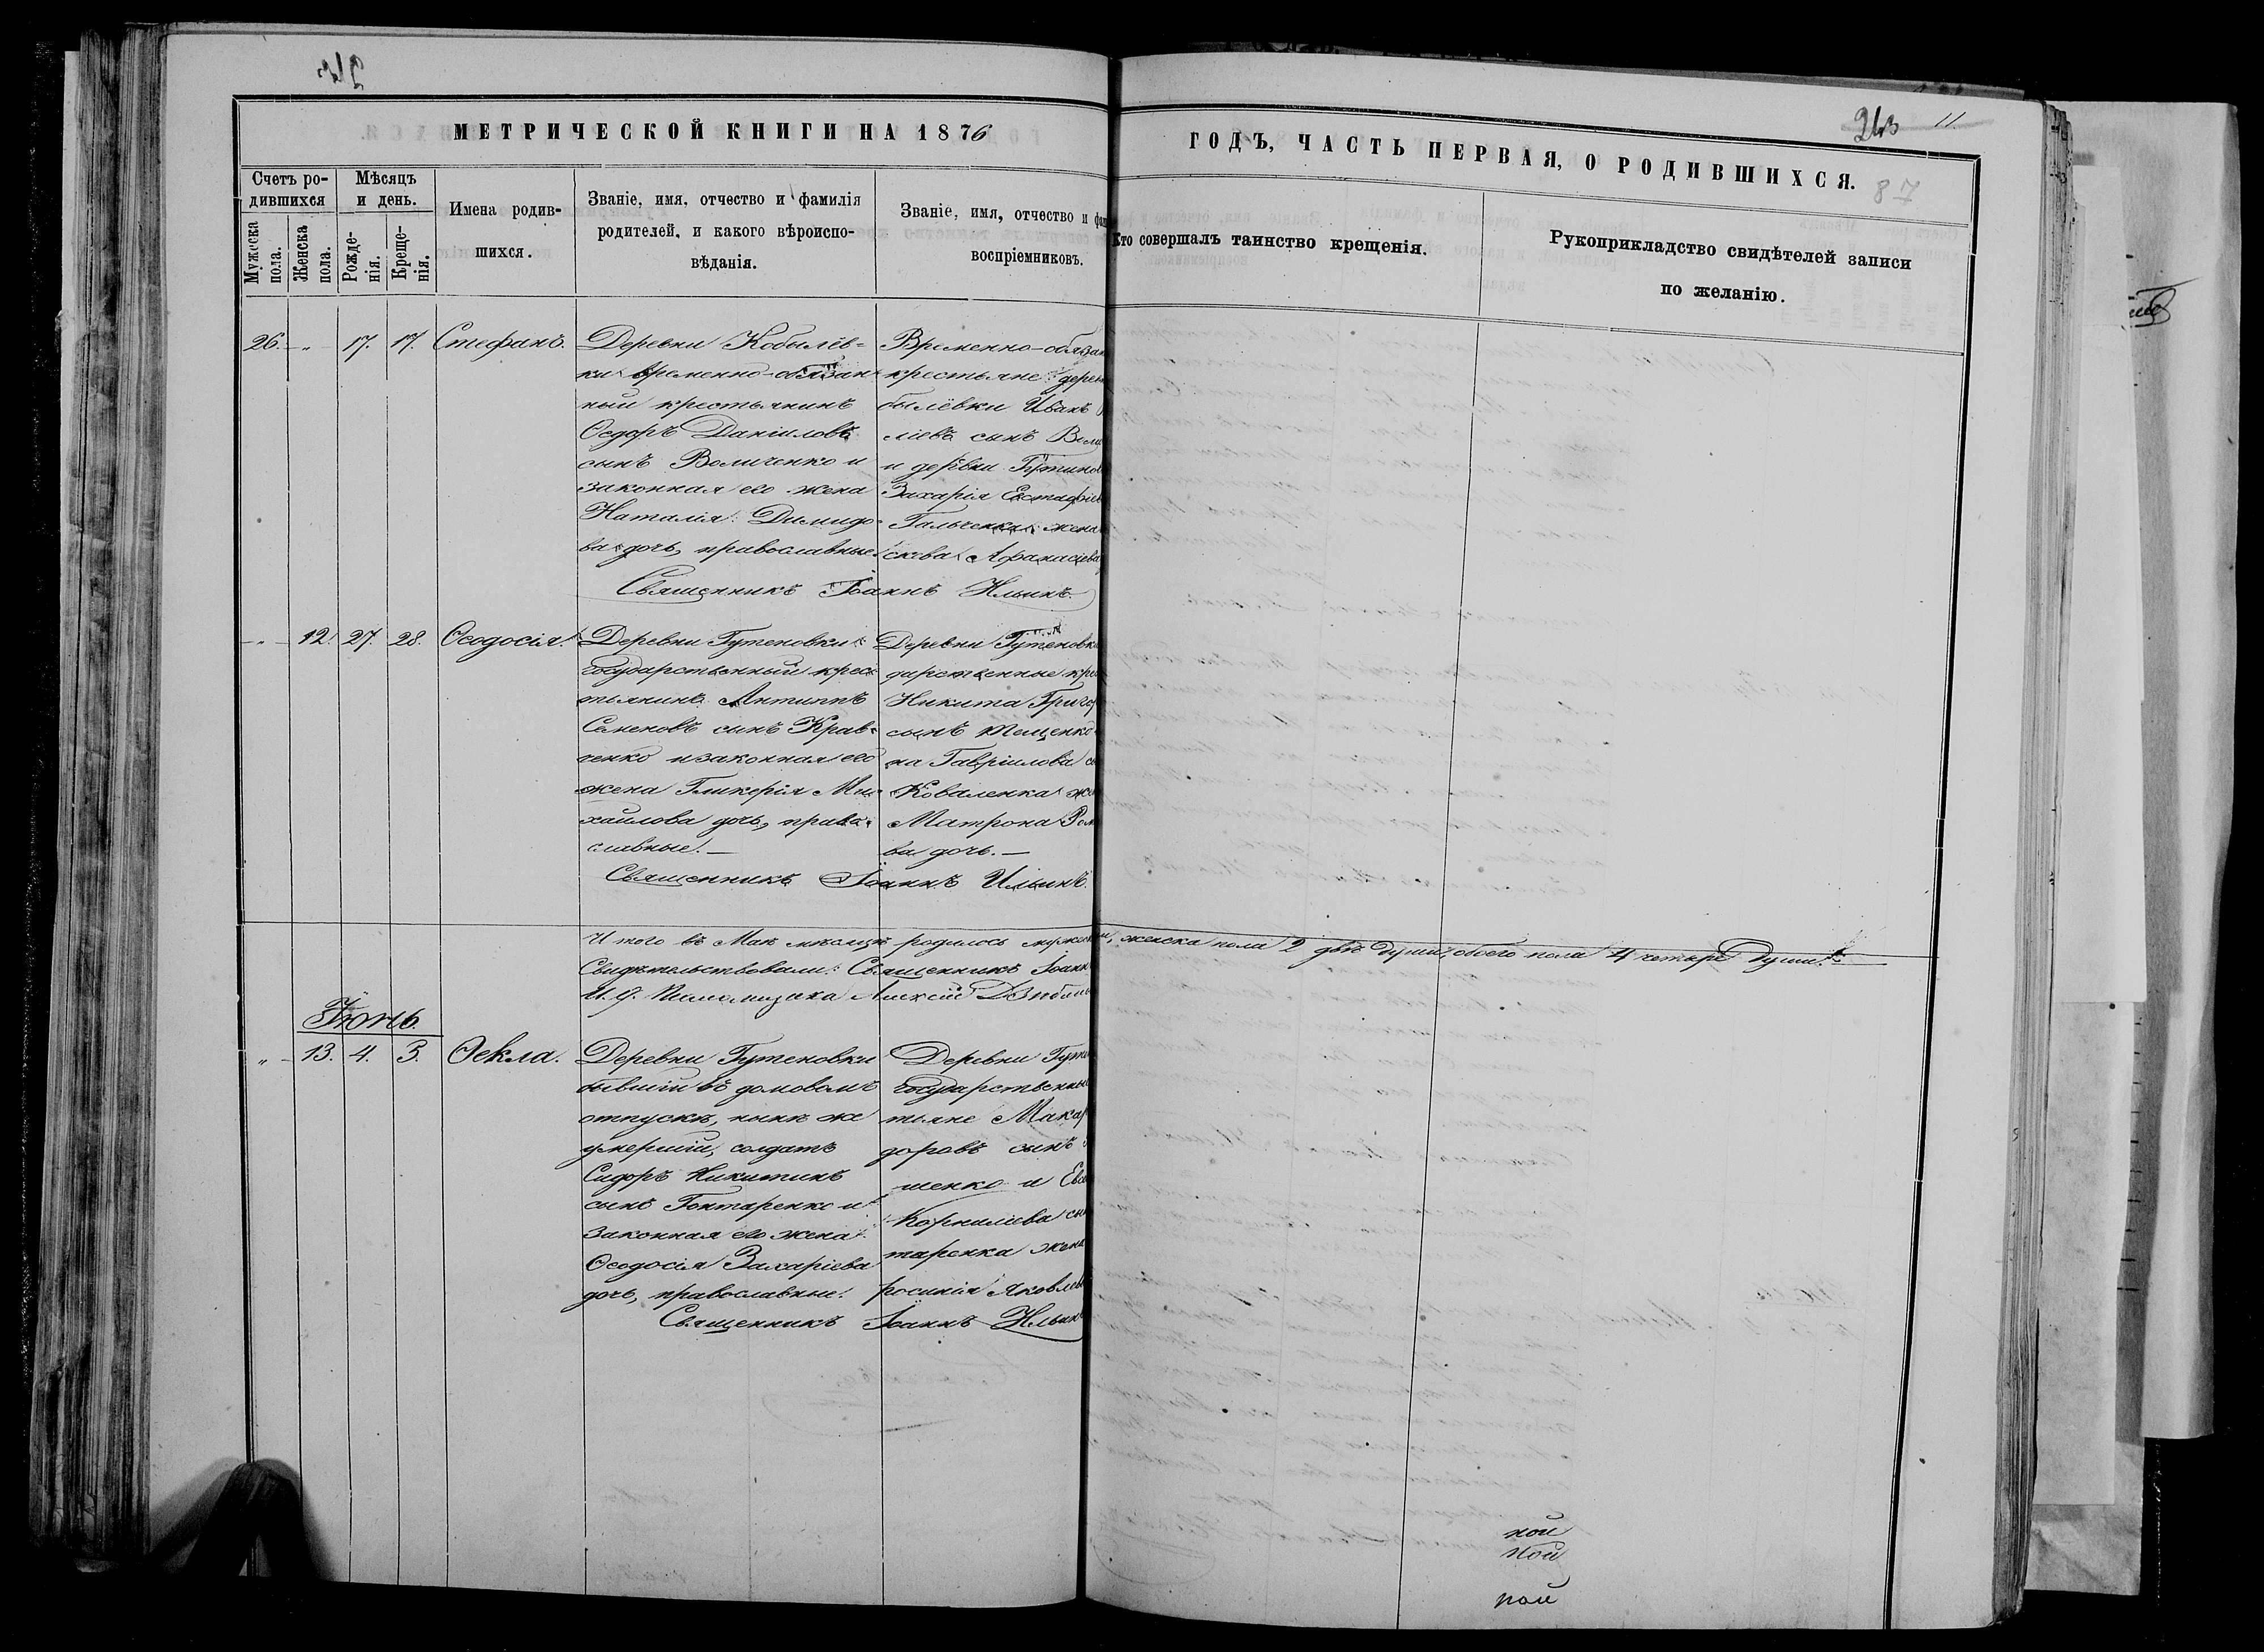 243
11.
МЕТРИЧЕСКОЙ КНИГИ НА 1876
ГОДЪ, ЧАСТЬ ПЕРВАЯ, О РОДИВШИХСЯ.
87
Счетъ ро-
дившихся
Мужеска
пола.
Женска
пола.
Мѣсяцъ
и день.
Рожде-
нія.
Креще-
нія.
Имена родив-
шихся.
Званіе, имя, отчество и фамилія
родителей, и какого вѣроиспо-
вѣданія.
Званіе, имя, отчество и фам
воспріемниковъ.
Кто совершалъ таинство крещенія.
Рукоприкладство свидѣтелей записи
по желанію.
26. - „ - 17. 17. Стефанъ.
Деревни Кобылёв-
ки временно-обязан-
ный крестьянинъ
Ѳедоръ Даніиловъ
сынъ Воличенко и
законная его жена
Наталія Димидо-
ва дочь, православные.
Временно-обязан
крестьяне: дерев
былёвки Иванъ
ліевъ сынъ
и деревни
Захарія Евстафіев
жена
Афанасіева
Священникъ Іоаннъ Ильинъ.
- „ - 12. 27. 28. Ѳеодосія.
Деревни Гутеновки:
государственный крес-
тьянинъ Антиппъ
Семеновъ сынъ Крав-
ченко и законная его
жена Гликерія Ми-
хаилова дочь, право-
славные. —
Деревни Гутеновк
дарственные кре
Никита Григор
сынъ Тещенко
на Гавріилова с
Коваленка же
Матрона Ром
ва дочь. —
Священникъ Іоаннъ Ильинъ.
Итого въ Маѣ мѣсяцѣ родилось мужеск , женска пола 2 двѣ души, обоего пола 4 четыре души.
Свидѣтельствовали: Священникъ Іоанн
И. д. Псаломщика Алексій
Іюнь.
„ - 13. 4. 5. Ѳекла.
Деревни Гутеновки
бывшій въ домовомъ
отпускѣ, нынѣ же
умершій, солдатъ
Сидоръ Никитинъ
сынъ Гонтаренко и
законная его жена
Ѳеодосія Захаріева
дочь, православные.
Деревни Гуте
государственны
тьяне Макар
доровъ сынъ
шенко и Евс
Корниліева сы
таренка жена
росинія Яковлев
Священникъ Іоаннъ Ильинъ
ной
ной
ной